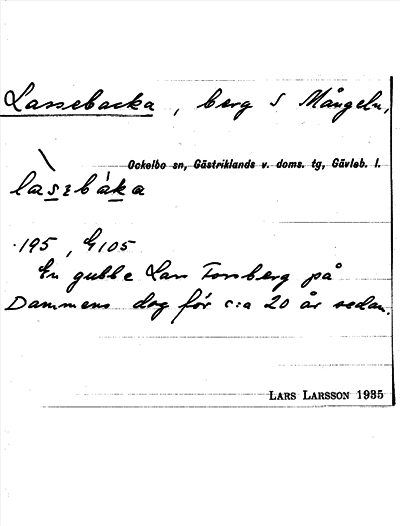 Lassebacka, berg S Mångeln,
Ockelbo sn, Gästriklands v. doms. tg, Gävleb. l.
làsɛbáka
195, G105
En gubbe Lars Forsberg på
Dammens dog för c:a 20 år sedan.
LARS LARSSON 1935